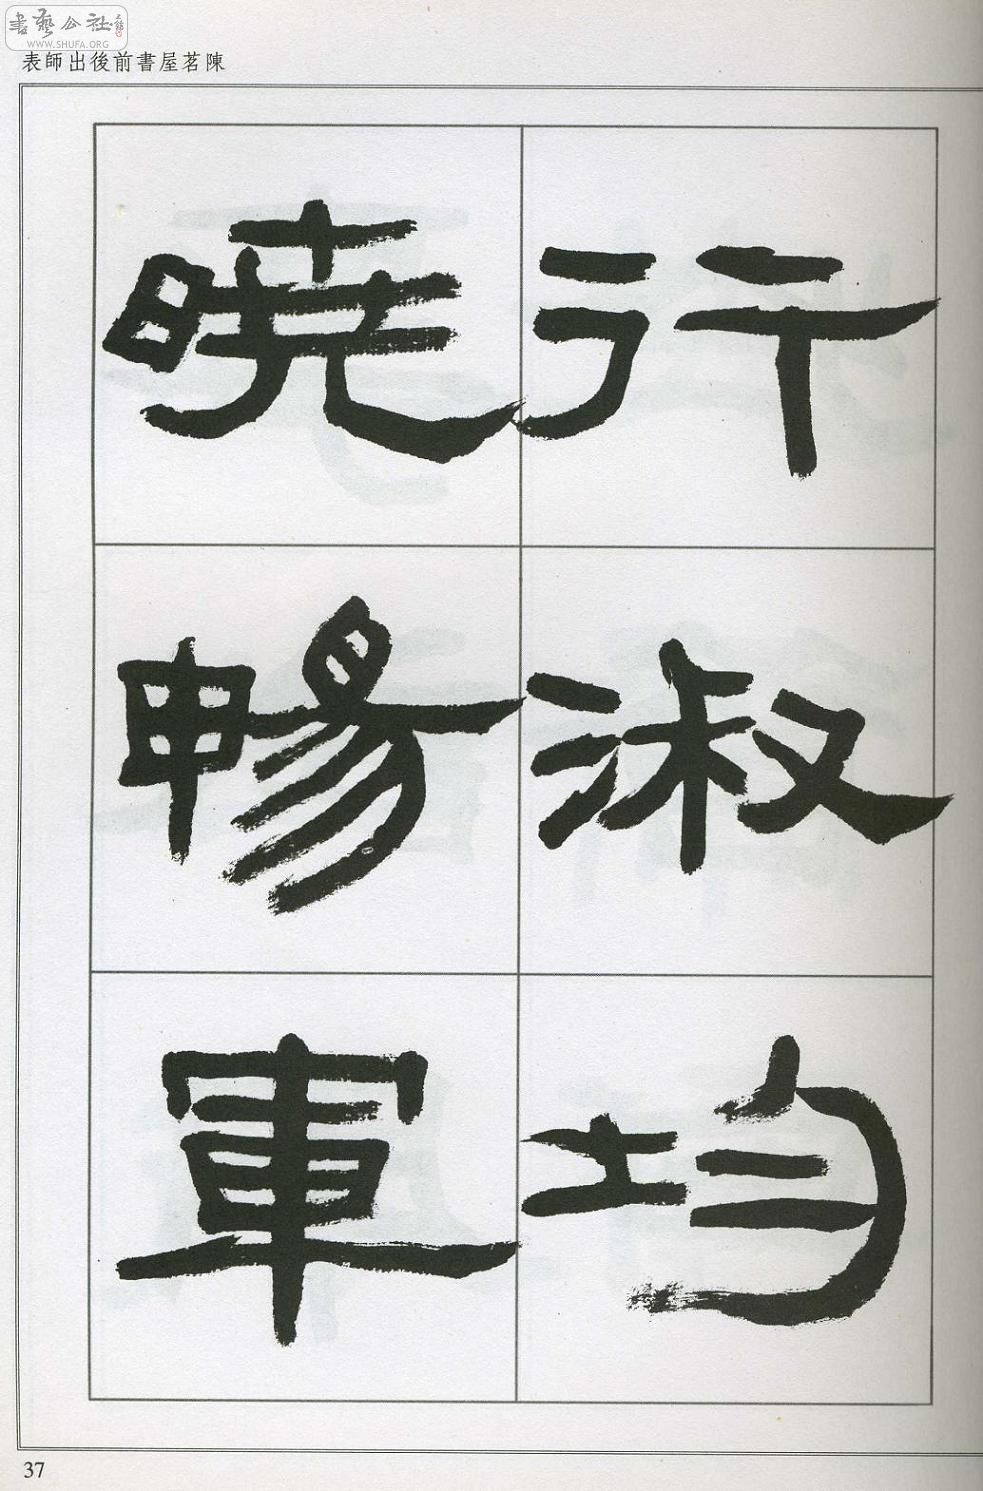 書藝公社
WWW.SHUFA.ORG
陳茗屋書前後出師表
行淑均
曉暢軍
37